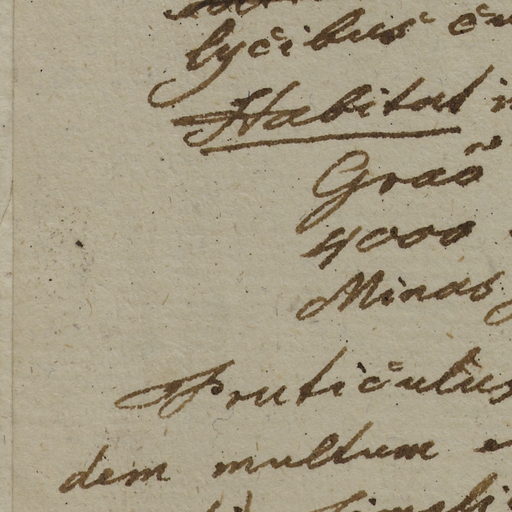 lycibus
Habitat
Graō
4000
Minas
Fruticulus
dem multum